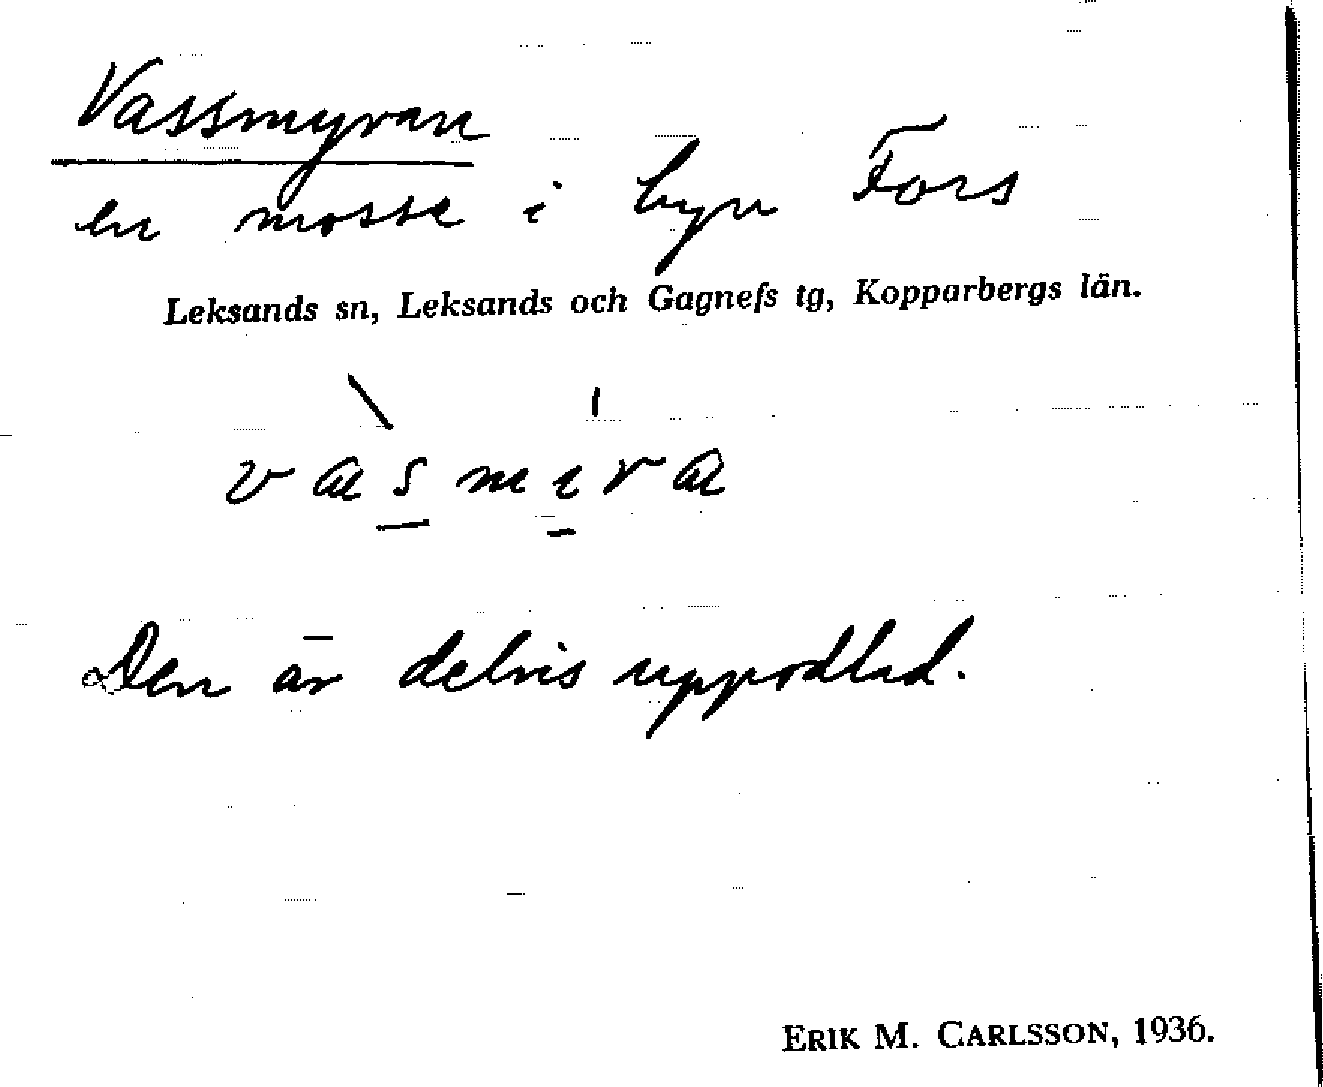 Vassmyran
en mosse i byn Fors
Leksands sn, Leksands och Gagnefs tg, Kopparbergs län.
vas̲mı̲ra
Den är delvis uppodlad.
ERIK M. CARLSSON, 1936.